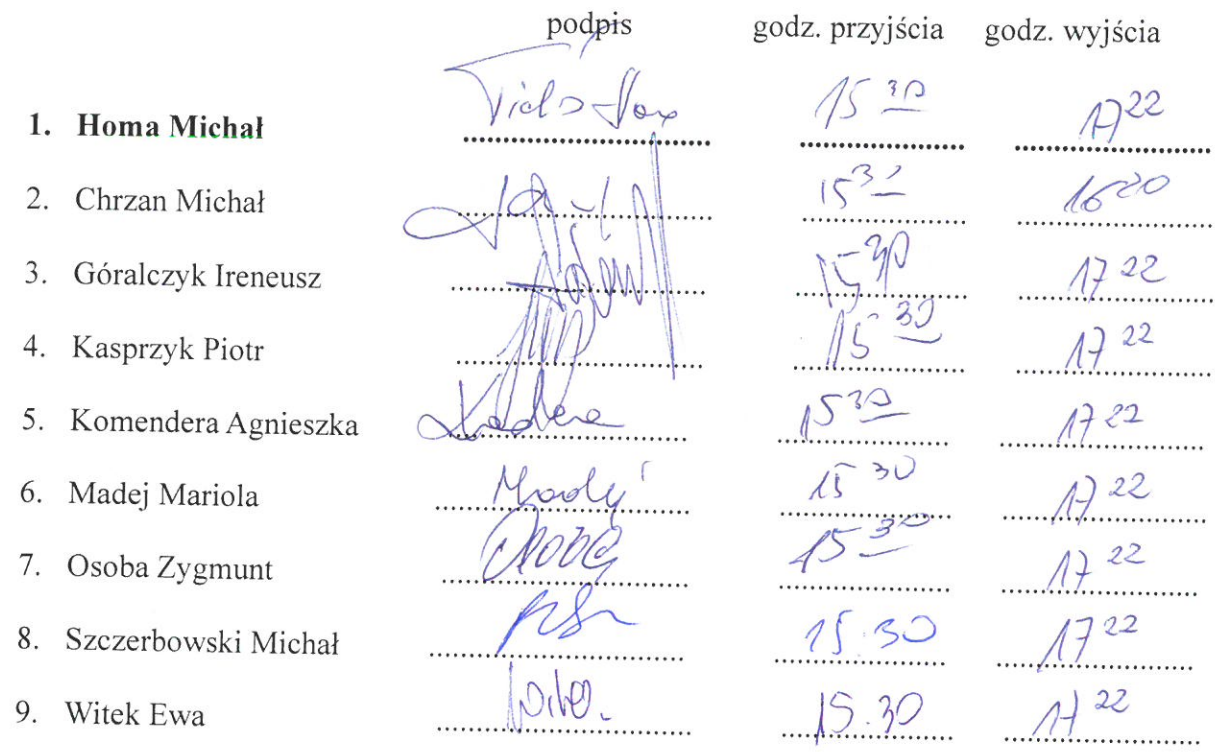 podpis godz. przyjścia godz. wyjścia
1. Homa Michał 15 30 17 22
2. Chrzan Michał 15 30 16 20
3. Góralczyk Ireneusz 15 30 17 22
4. Kasprzyk Piotr 15 30 17 22
5. Komendera Agnieszka 15 30 17 22
6. Madej Mariola Madej 15 30 17 22
7. Osoba Zygmunt Osoba 15 30 17 22
8. Szczerbowski Michał 15.30 17 22
9. Witek Ewa Witek. 15.30 17 22